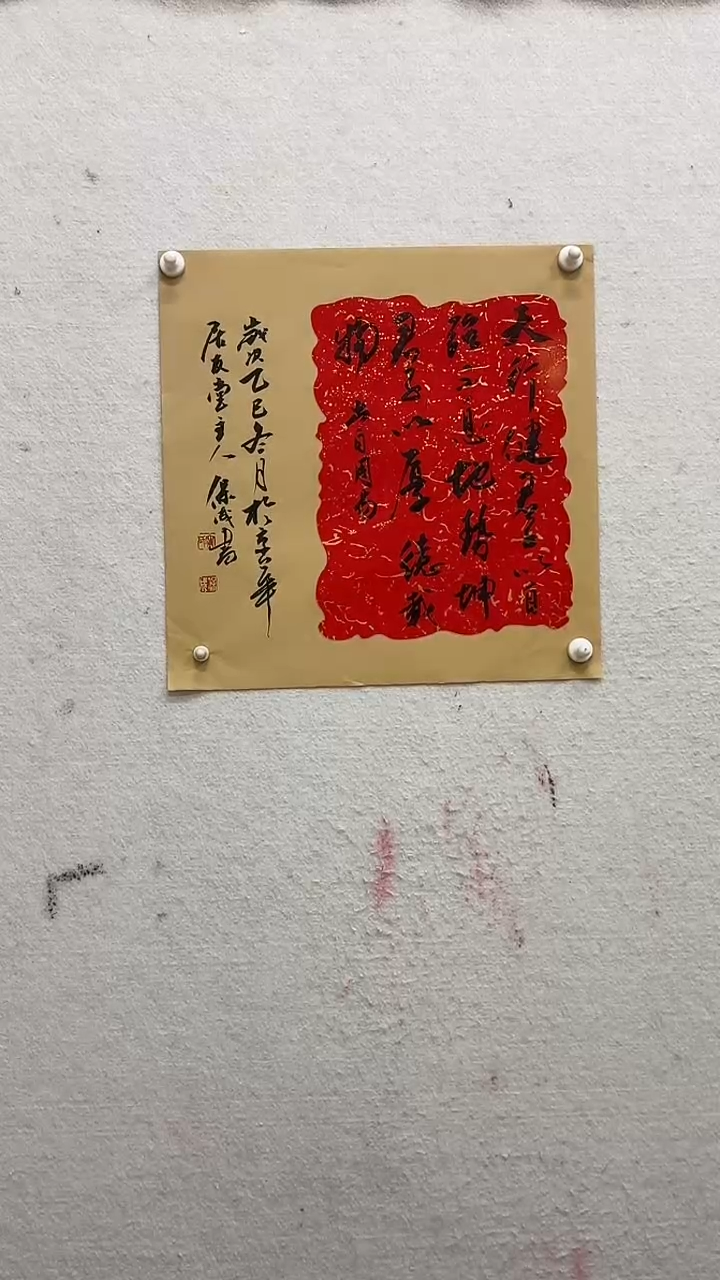 天行健君子以自
强不息地势坤
君子以厚德载
物 
歲次乙巳冬月於京華
居友堂主人 保成书